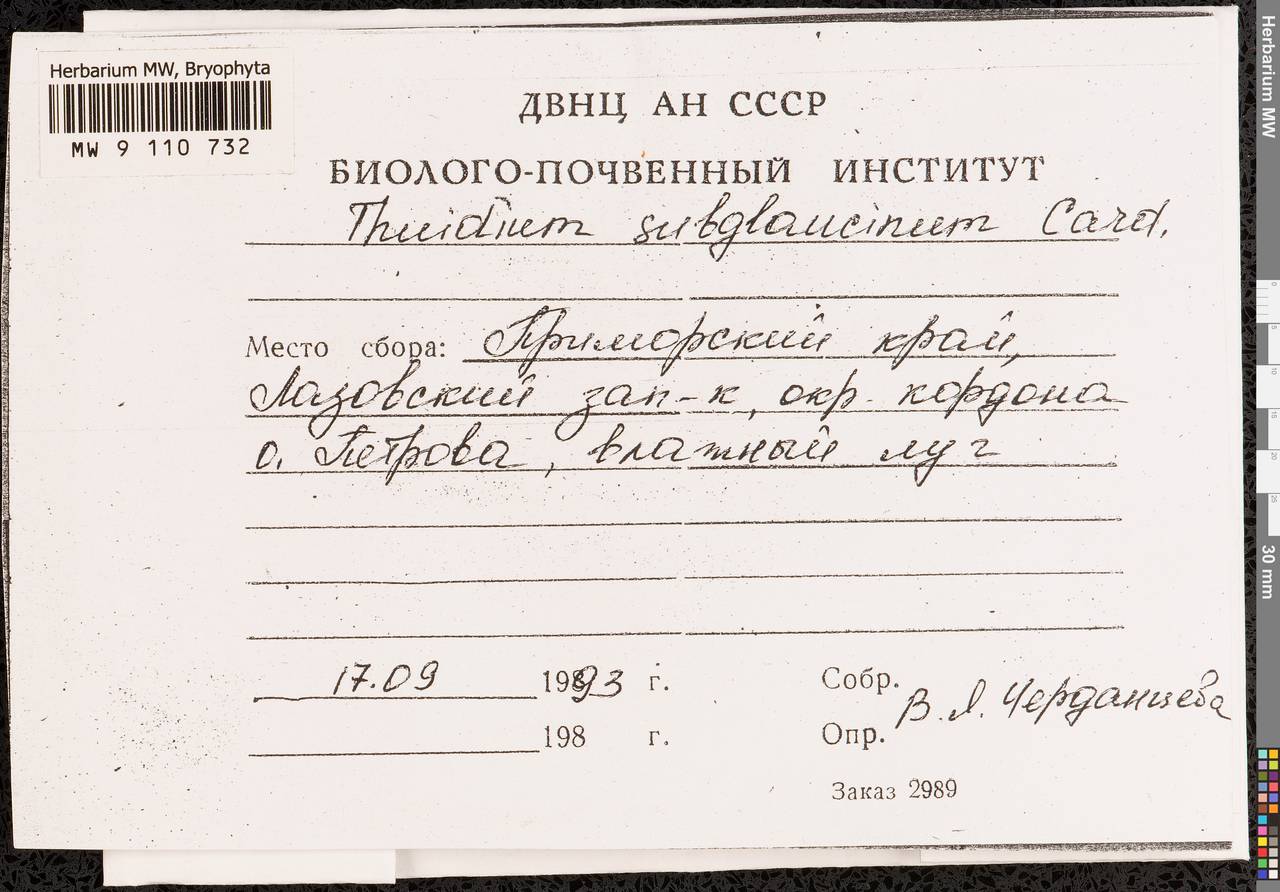 Herbarium MW, Bryophyta
MW 9 110 732
ДВНЦ АН СССР
БИОЛОГО-ПОЧВЕННЫЙ ИНСТИТУТ
Thuidium subglaucinum Card.
Место сбора: Приморский край,
Лазовский зап-к, окр. кордона
о. Петрова, влажный луг
17.09 19893 г.
198 г.
Собр.
Опр.
В. Я. Черданцева
Заказ 2989
Herbarium MW
0 5 10 15 20 25
30 mm